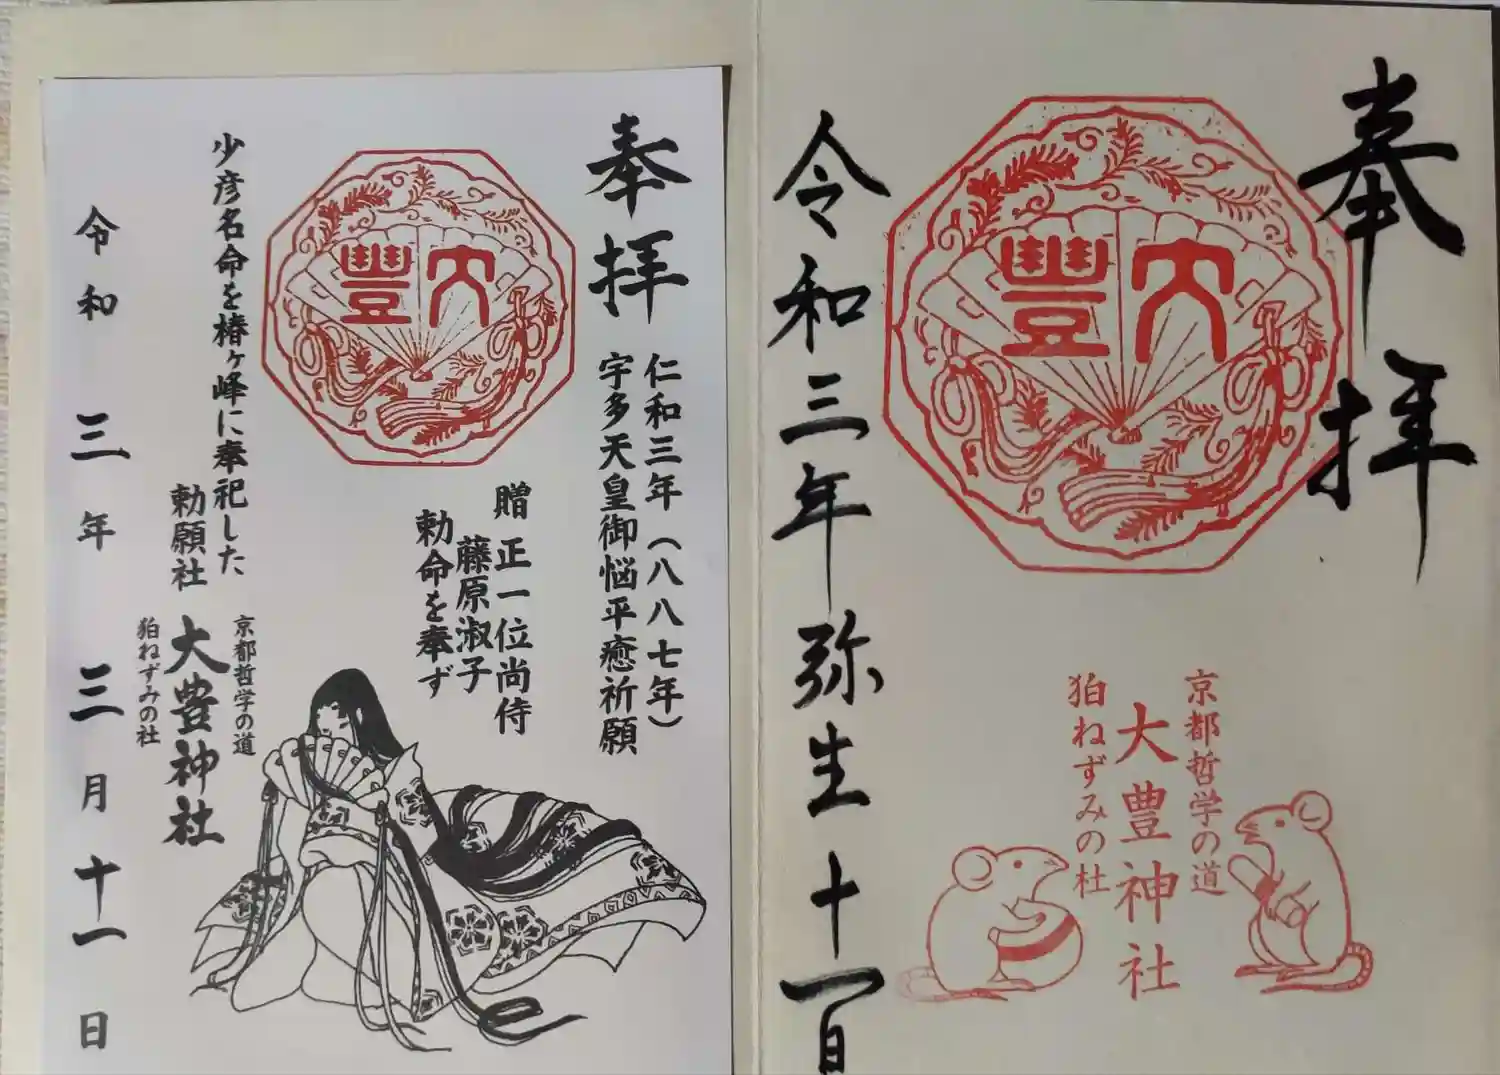 奉拝
令和三年弥生十一日
大豊
京都哲学の道
大豊神社
狛ねずみの杜
奉拝
仁和三年（八八七年）
宇多天皇御悩平癒祈願
大豊
贈 正一位尚侍
藤原淑子
勅命を奉ず
少彦名命を椿ヶ峰に奉祀した
勅願社
京都哲学の道
大豊神社
狛ねずみの社
令和三年三月十一日